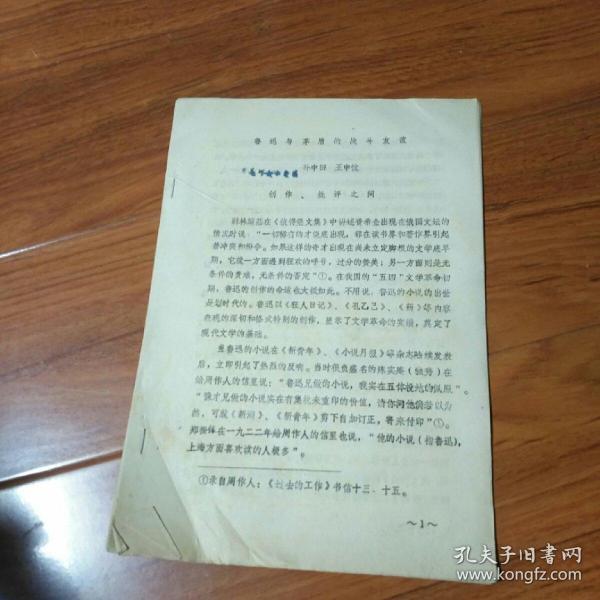 鲁迅与茅盾的战斗友谊
孙中田 王中忱
创作、批评之间
别林斯基在《彼得堡文集》中讲述普希金出现在俄国文坛的
情况时说："一切稀有的才能底出现，都在读书界和著作界引起
着冲突和纷争。如果这样的奇才出现在尚未立定脚根的文学底早
期，它从一方面遇到狂欢的呼号，过分的赞美；另一方面则是无
条件的责难，无条件的否定"①。在我国的"五四"文学革命初
期，鲁迅的创作的命运也大抵如此。不用说，鲁迅的小说的出世
是划时代的。鲁迅以《狂人日记》、《孔乙己》、《药》等内容
表现的深切和格式特别的创作，显示了文学革命的实绩，奠定了
现代文学的基础。
当鲁迅的小说在《新青年》、《小说月报》等杂志陆续发表
后，立即引起了热烈的反响。当时很负盛名的陈实庵（独秀）在
给周作人的信里说："鲁迅兄做的小说，我实在五体投地的佩服"。
"豫才兄做的小说实在有集拢来重印的价值，请你问他倘若以为
然，可就《新潮》、《新青年》剪下自加订正，寄来付印"①。
郑振铎在一九二二年给周作人的信里也说，"他的小说（指鲁迅），
上海方面喜欢读的人极多"。
①录自周作人：《过去的工作》书信十三、十五。
～1～
孔夫子旧书网
www.kongfz.com